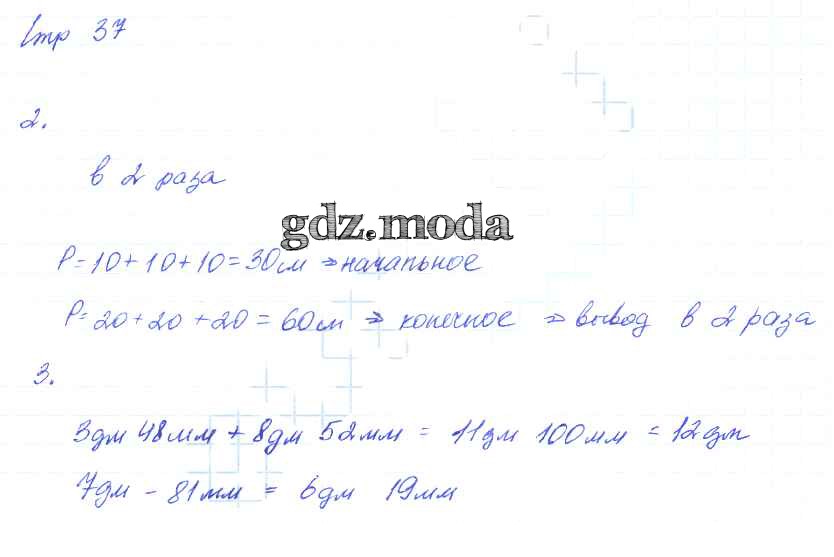 Стр 37
2.
в 2 раза
gdz.moda
P=10+10+10=30см ⇒ начальное
P=20+20+20=60см ⇒ конечное ⇒ вывод в 2 раза
3.
3дм 48мм + 8дм 52мм = 11дм 100мм = 12дм
7дм - 81мм = 6дм 19мм